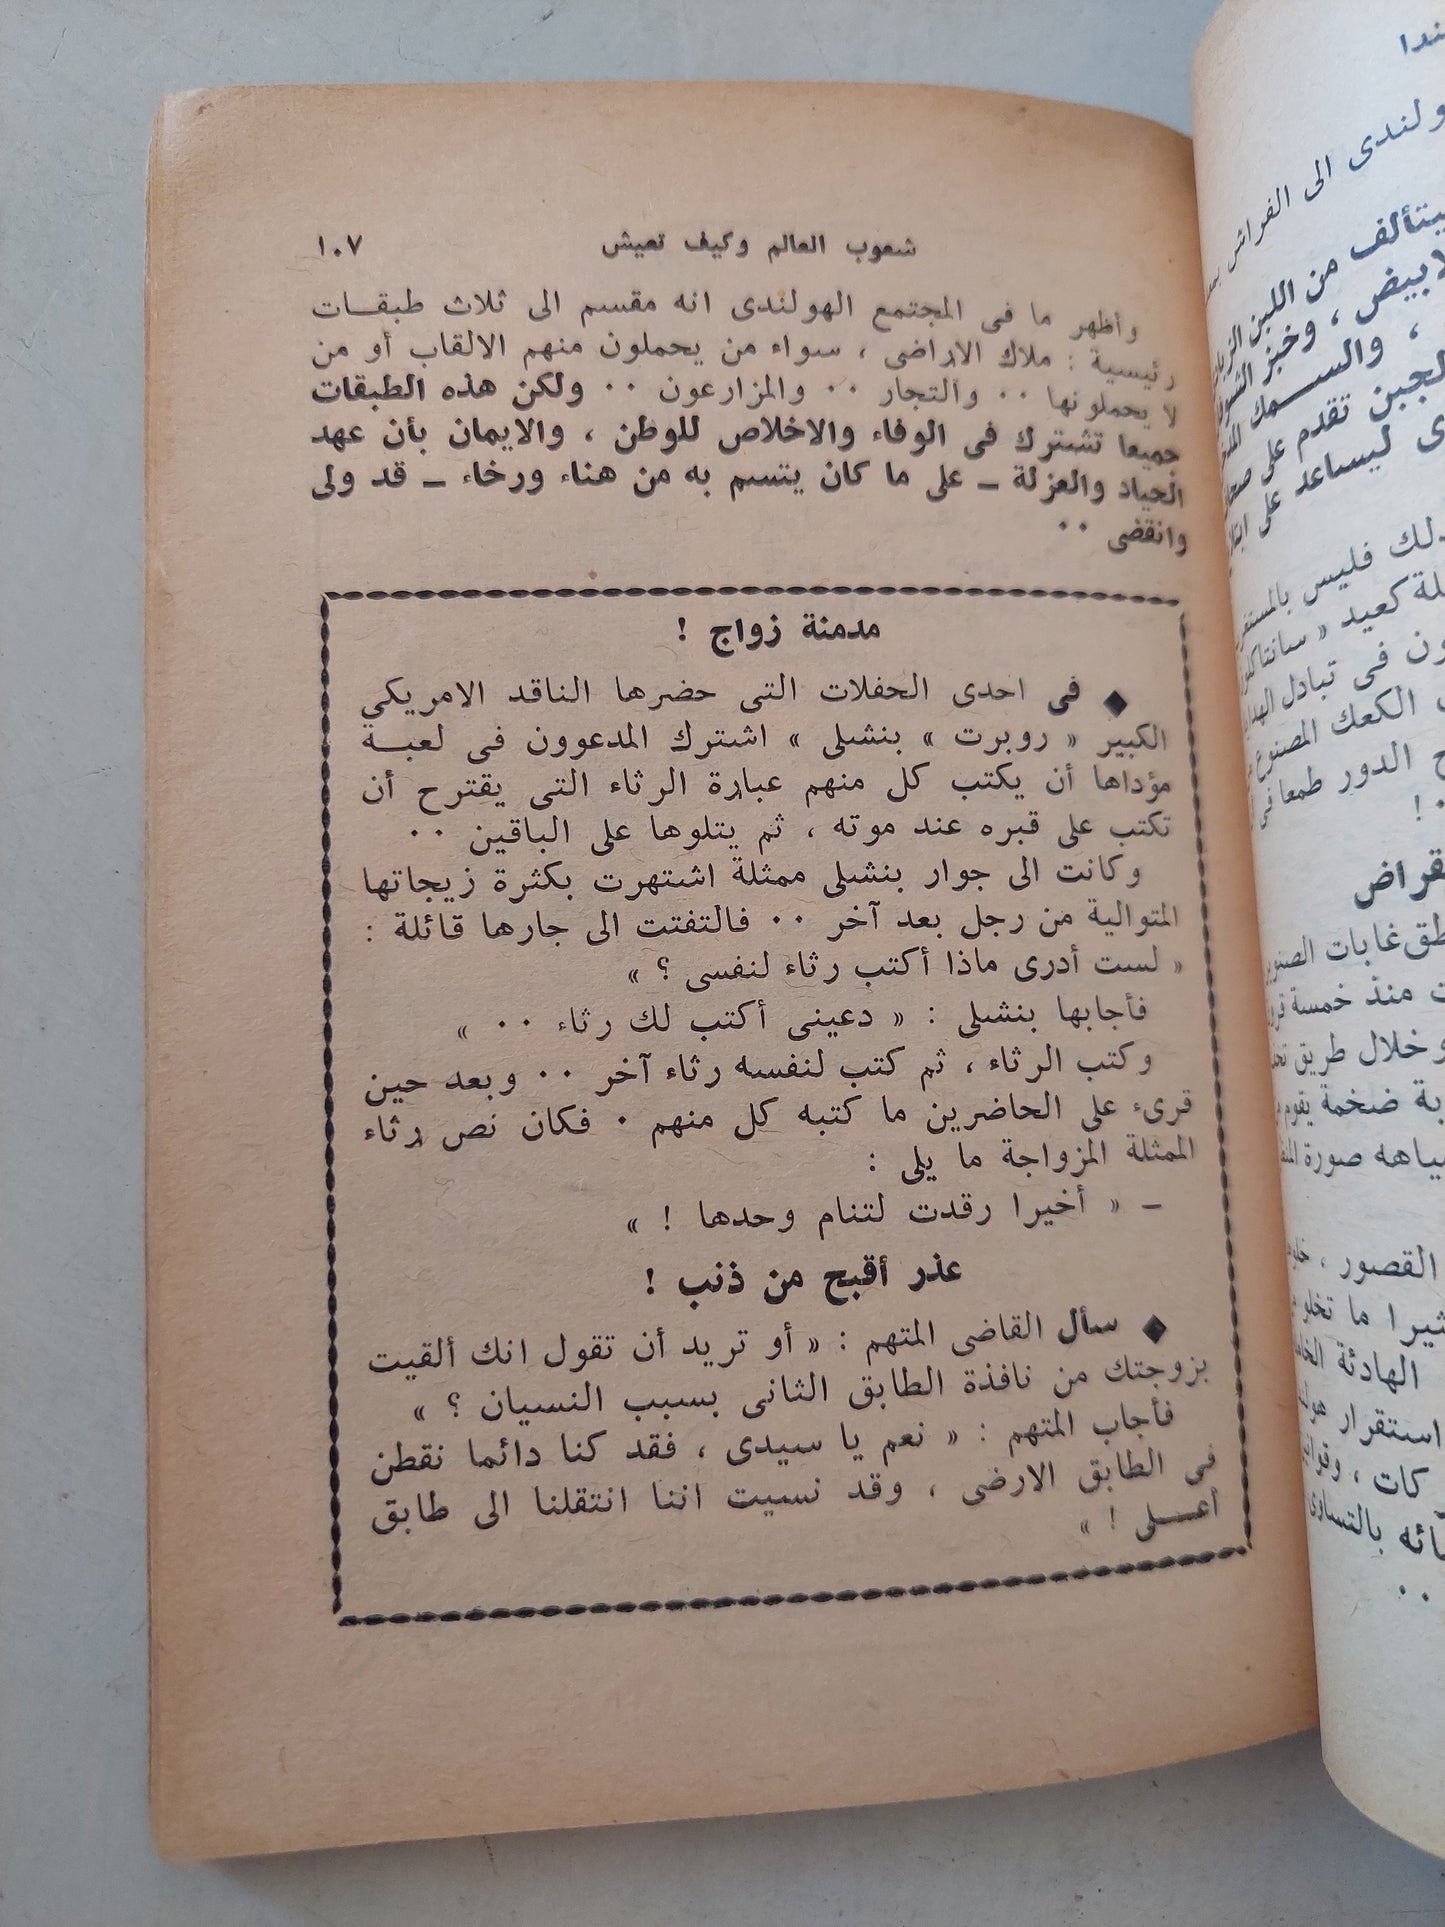 شعوب العالم وكيف تعيش ١٠٧
وأظهر ما فى المجتمع الهولندى انه مقسم الى ثلاث طبقات
رئيسية : ملاك الاراضى ، سواء من يحملون منهم الالقاب أو من
لا يحملونها ٠٠ والتجار ٠٠ والمزارعون ٠٠ ولكن هذه الطبقات
جميعا تشترك فى الوفاء والاخلاص للوطن ، والايمان بأن عهد
الحياد والعزلة – على ما كان يتسم به من هناء ورخاء – قد ولى
وانقضى ٠٠
مدمنة زواج !
◆ فى احدى الحفلات التى حضرها الناقد الامريكي
الكبير « روبرت » بنشلى » اشترك المدعوون فى لعبة
مؤداها أن يكتب كل منهم عبارة الرثاء التى يقترح أن
تكتب على قبره عند موته ، ثم يتلوها على الباقين ٠٠
وكانت الى جوار بنشلى ممثلة اشتهرت بكثرة زيجاتها
المتوالية من رجل بعد آخر ٠٠ فالتفتت الى جارها قائلة :
« لست أدرى ماذا أكتب رثاء لنفسى ؟ »
فأجابها بنشلى : « دعينى أكتب لك رثاء ٠٠ »
وكتب الرثاء ، ثم كتب لنفسه رثاء آخر ٠٠ وبعد حين
قرىء على الحاضرين ما كتبه كل منهم ٠ فكان نص رثاء
الممثلة المزواجة ما يلى :
– « أخيرا رقدت لتنام وحدها ! »
عذر أقبح من ذنب !
◆ سأل القاضى المتهم : « أو تريد أن تقول انك ألقيت
بزوجتك من نافذة الطابق الثانى بسبب النسيان ؟ »
فأجاب المتهم : « نعم يا سيدى ، فقد كنا دائما نقطن
فى الطابق الارضى ، وقد نسيت اننا انتقلنا الى طابق
أعلى ! »
ولندى الى الفراش
يتألف من اللبن
، وخبز
، والسمك
الجبن تقدم على
ليساعد على
فليس
كعيد «
فى تبادل
الكعك المصنوع
الدور طمعا فى
٠ !
غابات
منذ خمسة
وخلال طريق
ضخمة يقوم
صورة
القصور ،
ما تخلو
الهادئة
استقرار
، 
بالتساوى
٠٠